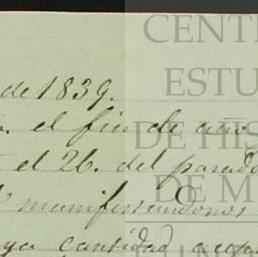 de 1839.
el fin de año
el 26. del pasado
manifestandonos
ya cantidad acep
CENT
ESTU
DE HIS
DE M